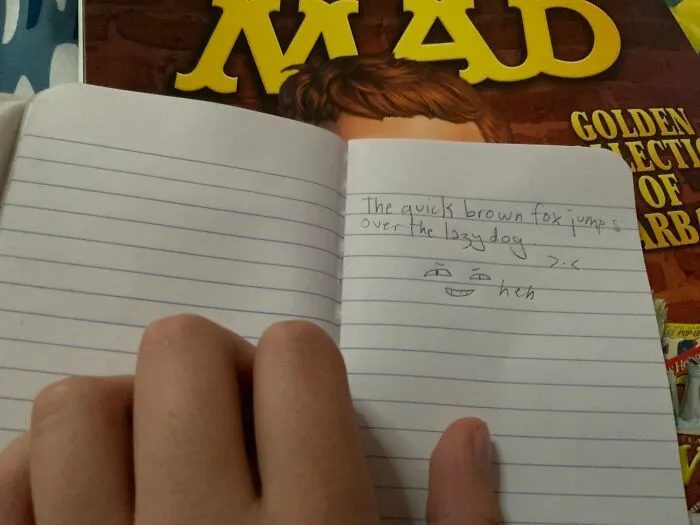 MAD
GOLDEN
OF
The quick brown fox jumps
over the lazy dog
>.<
heh